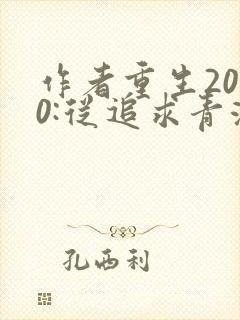 作者重生20
0:從追求青
孔西利